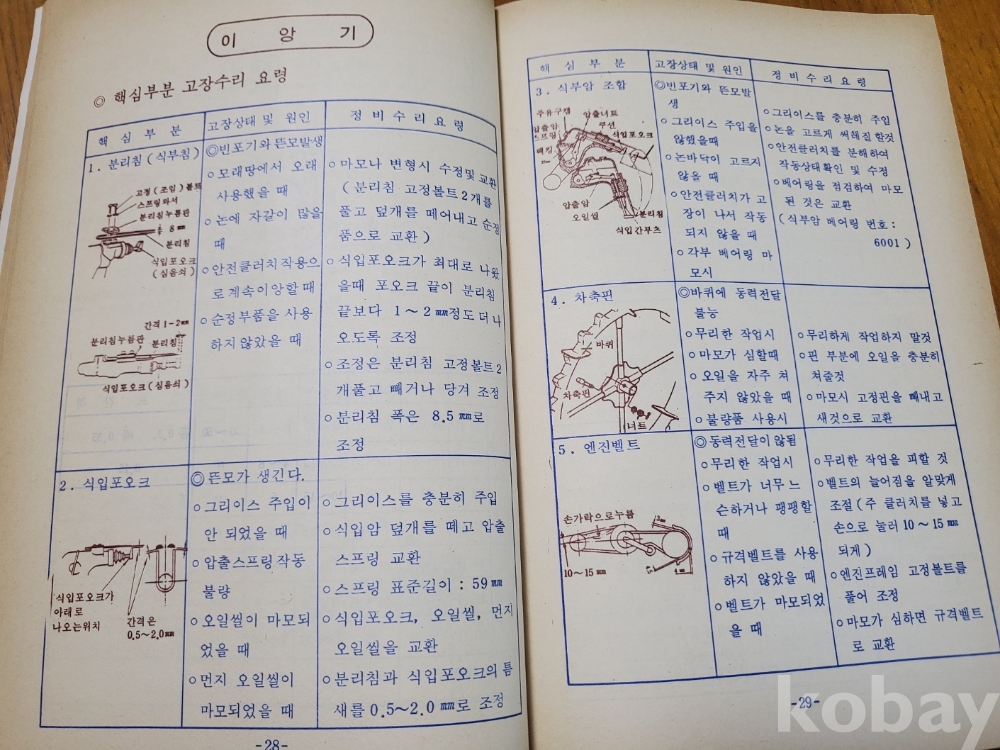 이 앙 기
◎ 핵심부분 고장수리 요령
핵 심 부 분
고장상태 및 원인
정 비 수 리 요 령
1. 분리침 (식부침)
고정 (조임) 볼트
스프링와셔
분리침누름판
8㎜
분리침
식입포오크
(심음쇠)
간격 1-2㎜
분리침누름판
분리침
식입포오크 (심음쇠)
◎빈포기와 뜬모발생
○모래땅에서 오래
사용했을 때
○논에 자갈이 많을
때
○안전클러치작용으
로계속이앙할 때
○순정부품을 사용
하지 않았을 때
○마모나 변형시 수정및 교환
(분리침 고정볼트 2개를
풀고 덮개를 떼어내고 순정
품으로 교환)
○식입포오크가 최대로 나왔
을때 포오크 끝이 분리침
끝보다 1～2㎜정도 더 나
오도록 조정
○조정은 분리침 고정볼트 2
개풀고 빼거나 당겨 조정
○분리침 폭은 8.5㎜로
조정
2. 식입포오크
식입포오크가
아래로
나오는위치
간격은
0.5～2.0㎜
◎뜬모가 생긴다.
○그리이스 주입이
안 되었을 때
○압출스프링작동
불량
○오일씰이 마모되
었을 때
○먼지 오일씰이
마모되었을 때
○그리이스를 충분히 주입
○식입암 덮개를 떼고 압출
스프링 교환
○스프링 표준길이 : 59㎜
○식입포오크, 오일씰, 먼지
오일씰을 교환
○분리침과 식입포오크의 틈
새를 0.5～2.0㎜로 조정
-28-
핵 심 부 분
고장상태 및 원인
정 비 수 리 요 령
3. 식부암 조합
주유구캡
압출암
스프링
패킹
압출너트
쿠션
식입포오크
압출암
오일씰
분리침
식입간부츠
◎빈포기와 뜬모발
생
○그리이스 주입을
않했을때
○논바닥이 고르지
않을 때
○안전클러치가 고
장이 나서 작동
되지 않을 때
○각부 베어링 마
모시
○그리이스를 충분히 주입
○논을 고르게 써레질 할것
○안전클러치를 분해하여
작동상태확인 및 수정
○베어링을 점검하여 마모
된 것은 교환
(식부암 베어링 번호 :
6001)
4. 차축핀
바퀴
차축핀
너트
◎바퀴에 동력전달
불능
○무리한 작업시
○마모가 심할때
○오일을 자주 쳐
주지 않았을 때
○불량품 사용시
○무리하게 작업하지 말것
○핀 부분에 오일을 충분히
쳐줄것
○마모시 고정핀을 빼내고
새것으로 교환
5. 엔진벨트
손가락으로누름
10～15㎜
◎동력전달이 않됨
○무리한 작업시
○벨트가 너무 느
슨하거나 팽팽할
때
○규격벨트를 사용
하지 않았을 때
○벨트가 마모되었
을 때
○무리한 작업을 피할 것
○벨트의 늘어짐을 알맞게
조절 (주 클러치를 넣고
손으로 눌러 10～15㎜
되게)
○엔진프레임 고정볼트를
풀어 조정
○마모가 심하면 규격벨트
로 교환
-29-
kobay